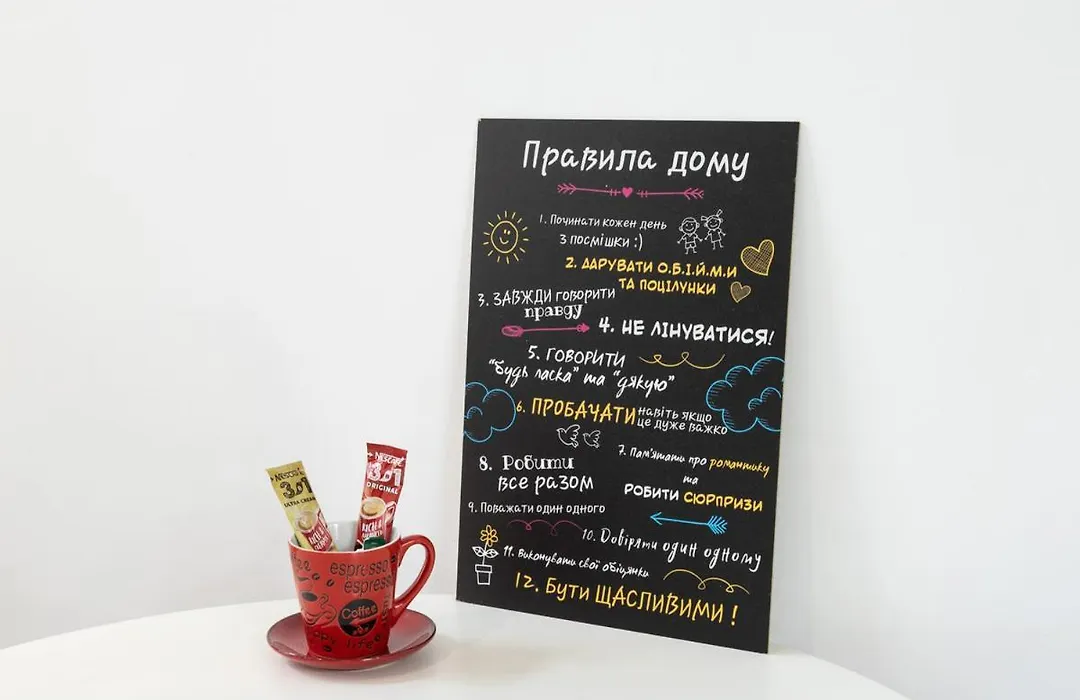 Правила дому
1. Починати кожен день
з посмішки :)
2. ДАРУВАТИ О.Б.І.Й.М.И
ТА ПОЦІЛУНКИ
3. ЗАВЖДИ говорити
правду
4. НЕ ЛІНУВАТИСЯ!
5. ГОВОРИТИ
"будь ласка" та "дякую"
6. ПРОБАЧАТИ навіть якщо
це дуже важко
7. Пам'ятати про романтику
та
РОБИТИ СЮРПРИЗИ
8. Робити
все разом
9. Поважати один одного
10. Довіряти один одному
11. Виконувати свої обіцянки
12. Бути ЩАСЛИВИМИ !
NESCAFÉ
3в1
ULTRA CREAMY
NESCAFÉ
3в1
ORIGINAL
espresso
espresso
Coffee